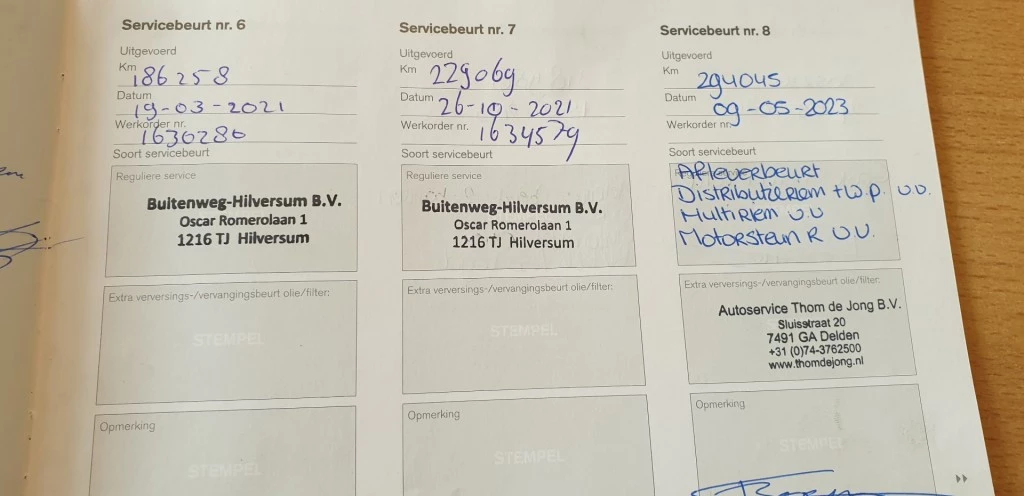 Servicebeurt nr. 6
Uitgevoerd
Km 186258
Datum 19-03-2021
Werkorder nr. 1630280
Soort servicebeurt
Reguliere service
Buitenweg-Hilversum B.V.
Oscar Romerolaan 1
1216 TJ Hilversum
Extra verversings-/vervangingsbeurt olie/filter:
STEMPEL
Opmerking
STEMPEL
Servicebeurt nr. 7
Uitgevoerd
Km 229069
Datum 26-10-2021
Werkorder nr. 1634579
Soort servicebeurt
Reguliere service
Buitenweg-Hilversum B.V.
Oscar Romerolaan 1
1216 TJ Hilversum
Extra verversings-/vervangingsbeurt olie/filter:
STEMPEL
Opmerking
STEMPEL
Servicebeurt nr. 8
Uitgevoerd
Km 294045
Datum 09-05-2023
Werkorder nr.
Soort servicebeurt
Afleverbeurt
Distributieriem + W.P. U.U.
Multiriem U.U
Motorsteun R U.U.
Extra verversings-/vervangingsbeurt olie/filter:
Autoservice Thom de Jong B.V.
Sluisstraat 20
7491 GA Delden
+31 (0)74-3762500
www.thomdejong.nl
Opmerking
STEMPEL